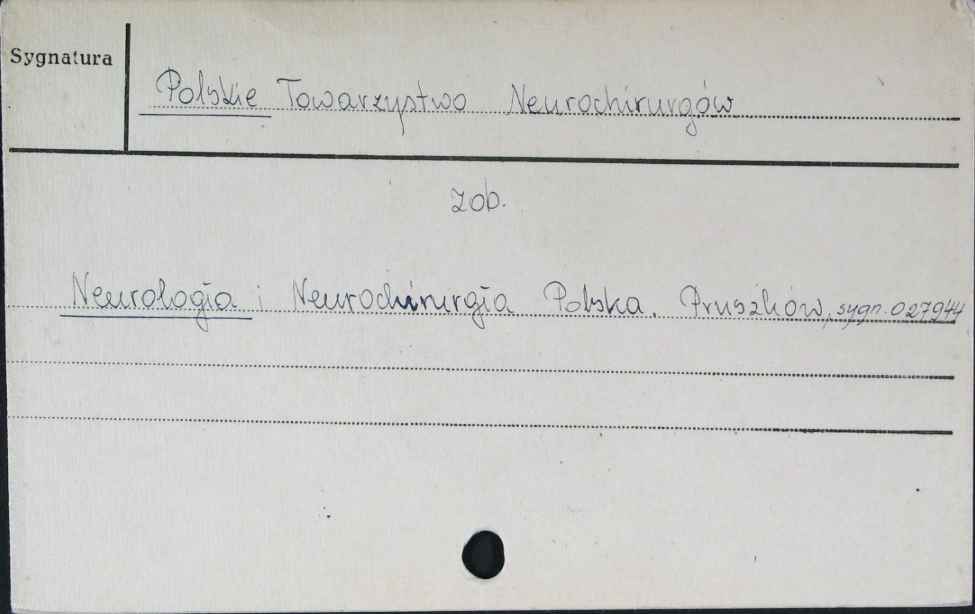 Sygnatura
Polskie Towarzystwo Neurochirurgów
zob.
Neurologia i Neurochirurgia Polska. Pruszków, sygn. 027944